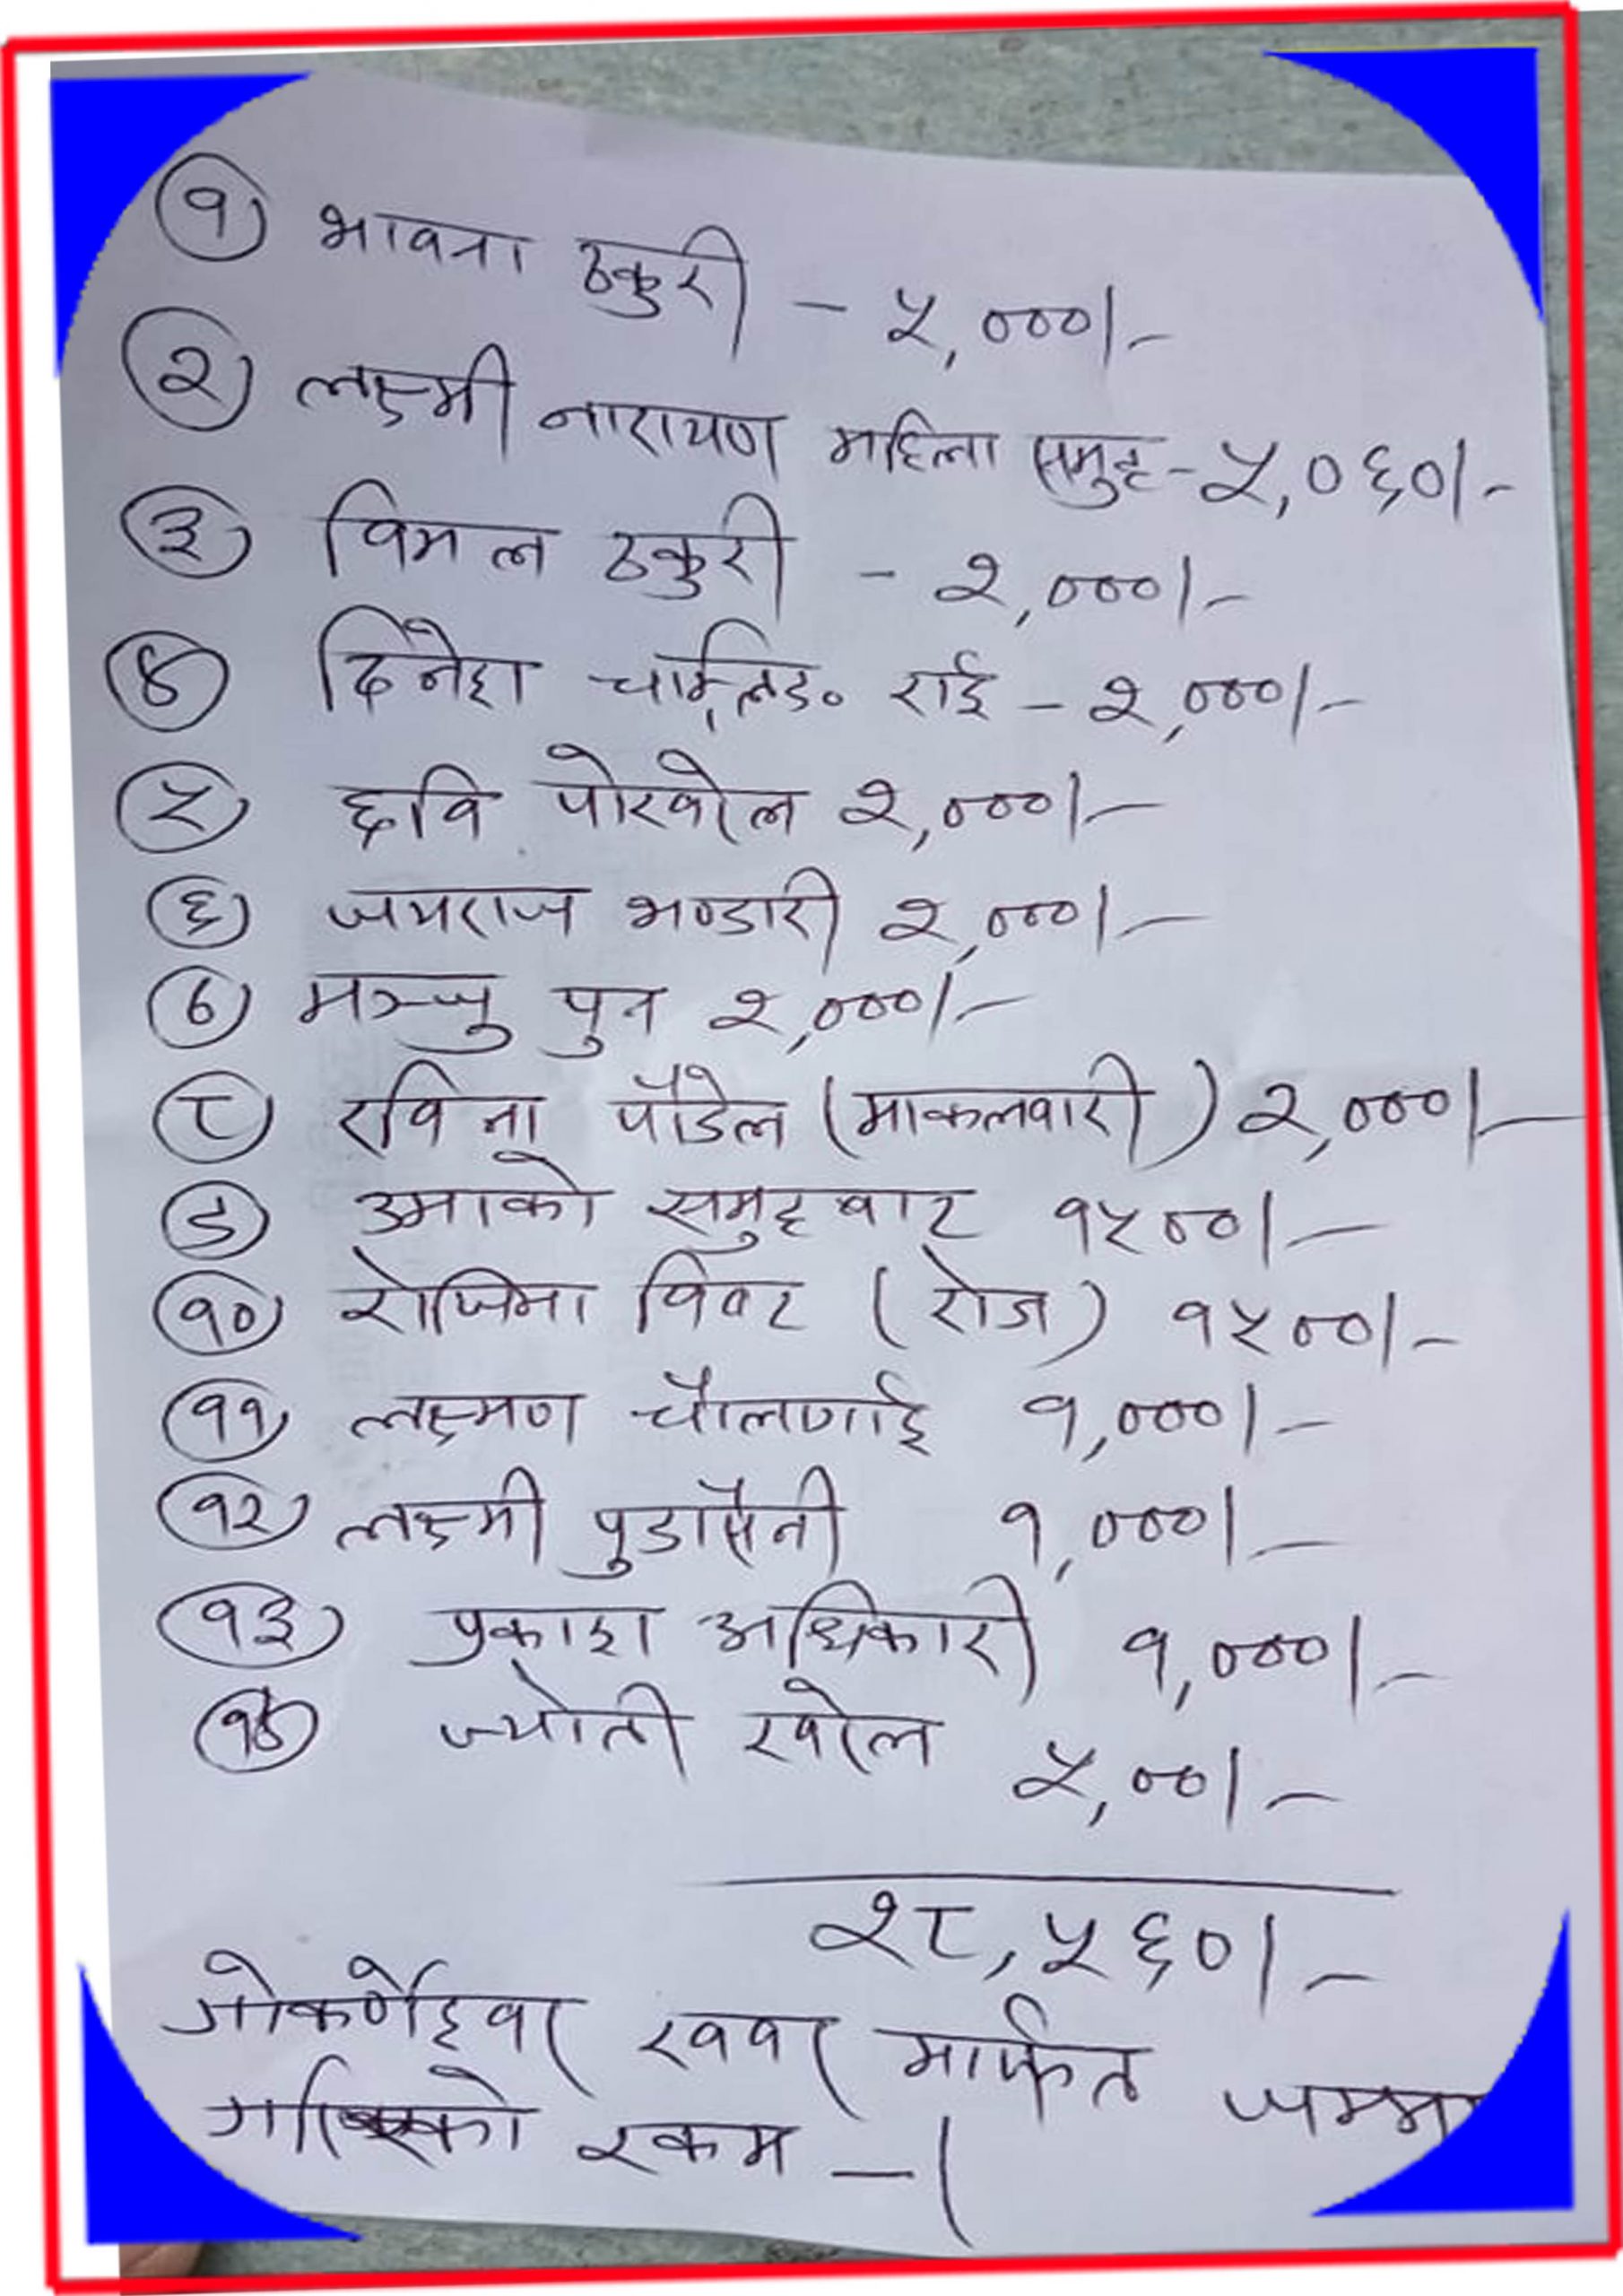 १ भावना ठकुरी - ५,०००/-
२ लक्ष्मी नारायण महिला समुह - ५,०६०/-
३ विमल ठकुरी - २,०००/-
४ दिनेश चाम्लिङ राई - २,०००/-
५ छवि पोखरेल २,०००/-
६ जयराज भण्डारी २,०००/-
७ मञ्जु पुन २,०००/-
८ रविना पौडेल (माकलवारी) २,०००/-
९ उमाको समुहवाट १५००/-
१० रोजिना विष्ट (रोज) १५००/-
११ लक्ष्मण चौलागाई १,०००/-
१२ लक्ष्मी पुडासैनी १,०००/-
१३ प्रकाश अधिकारी १,०००/-
१४ ज्योती रवोल ५,००/-
२८,५६०/-
गोकर्णेश्वर खवर मार्फत जम्मा
को रकम -।